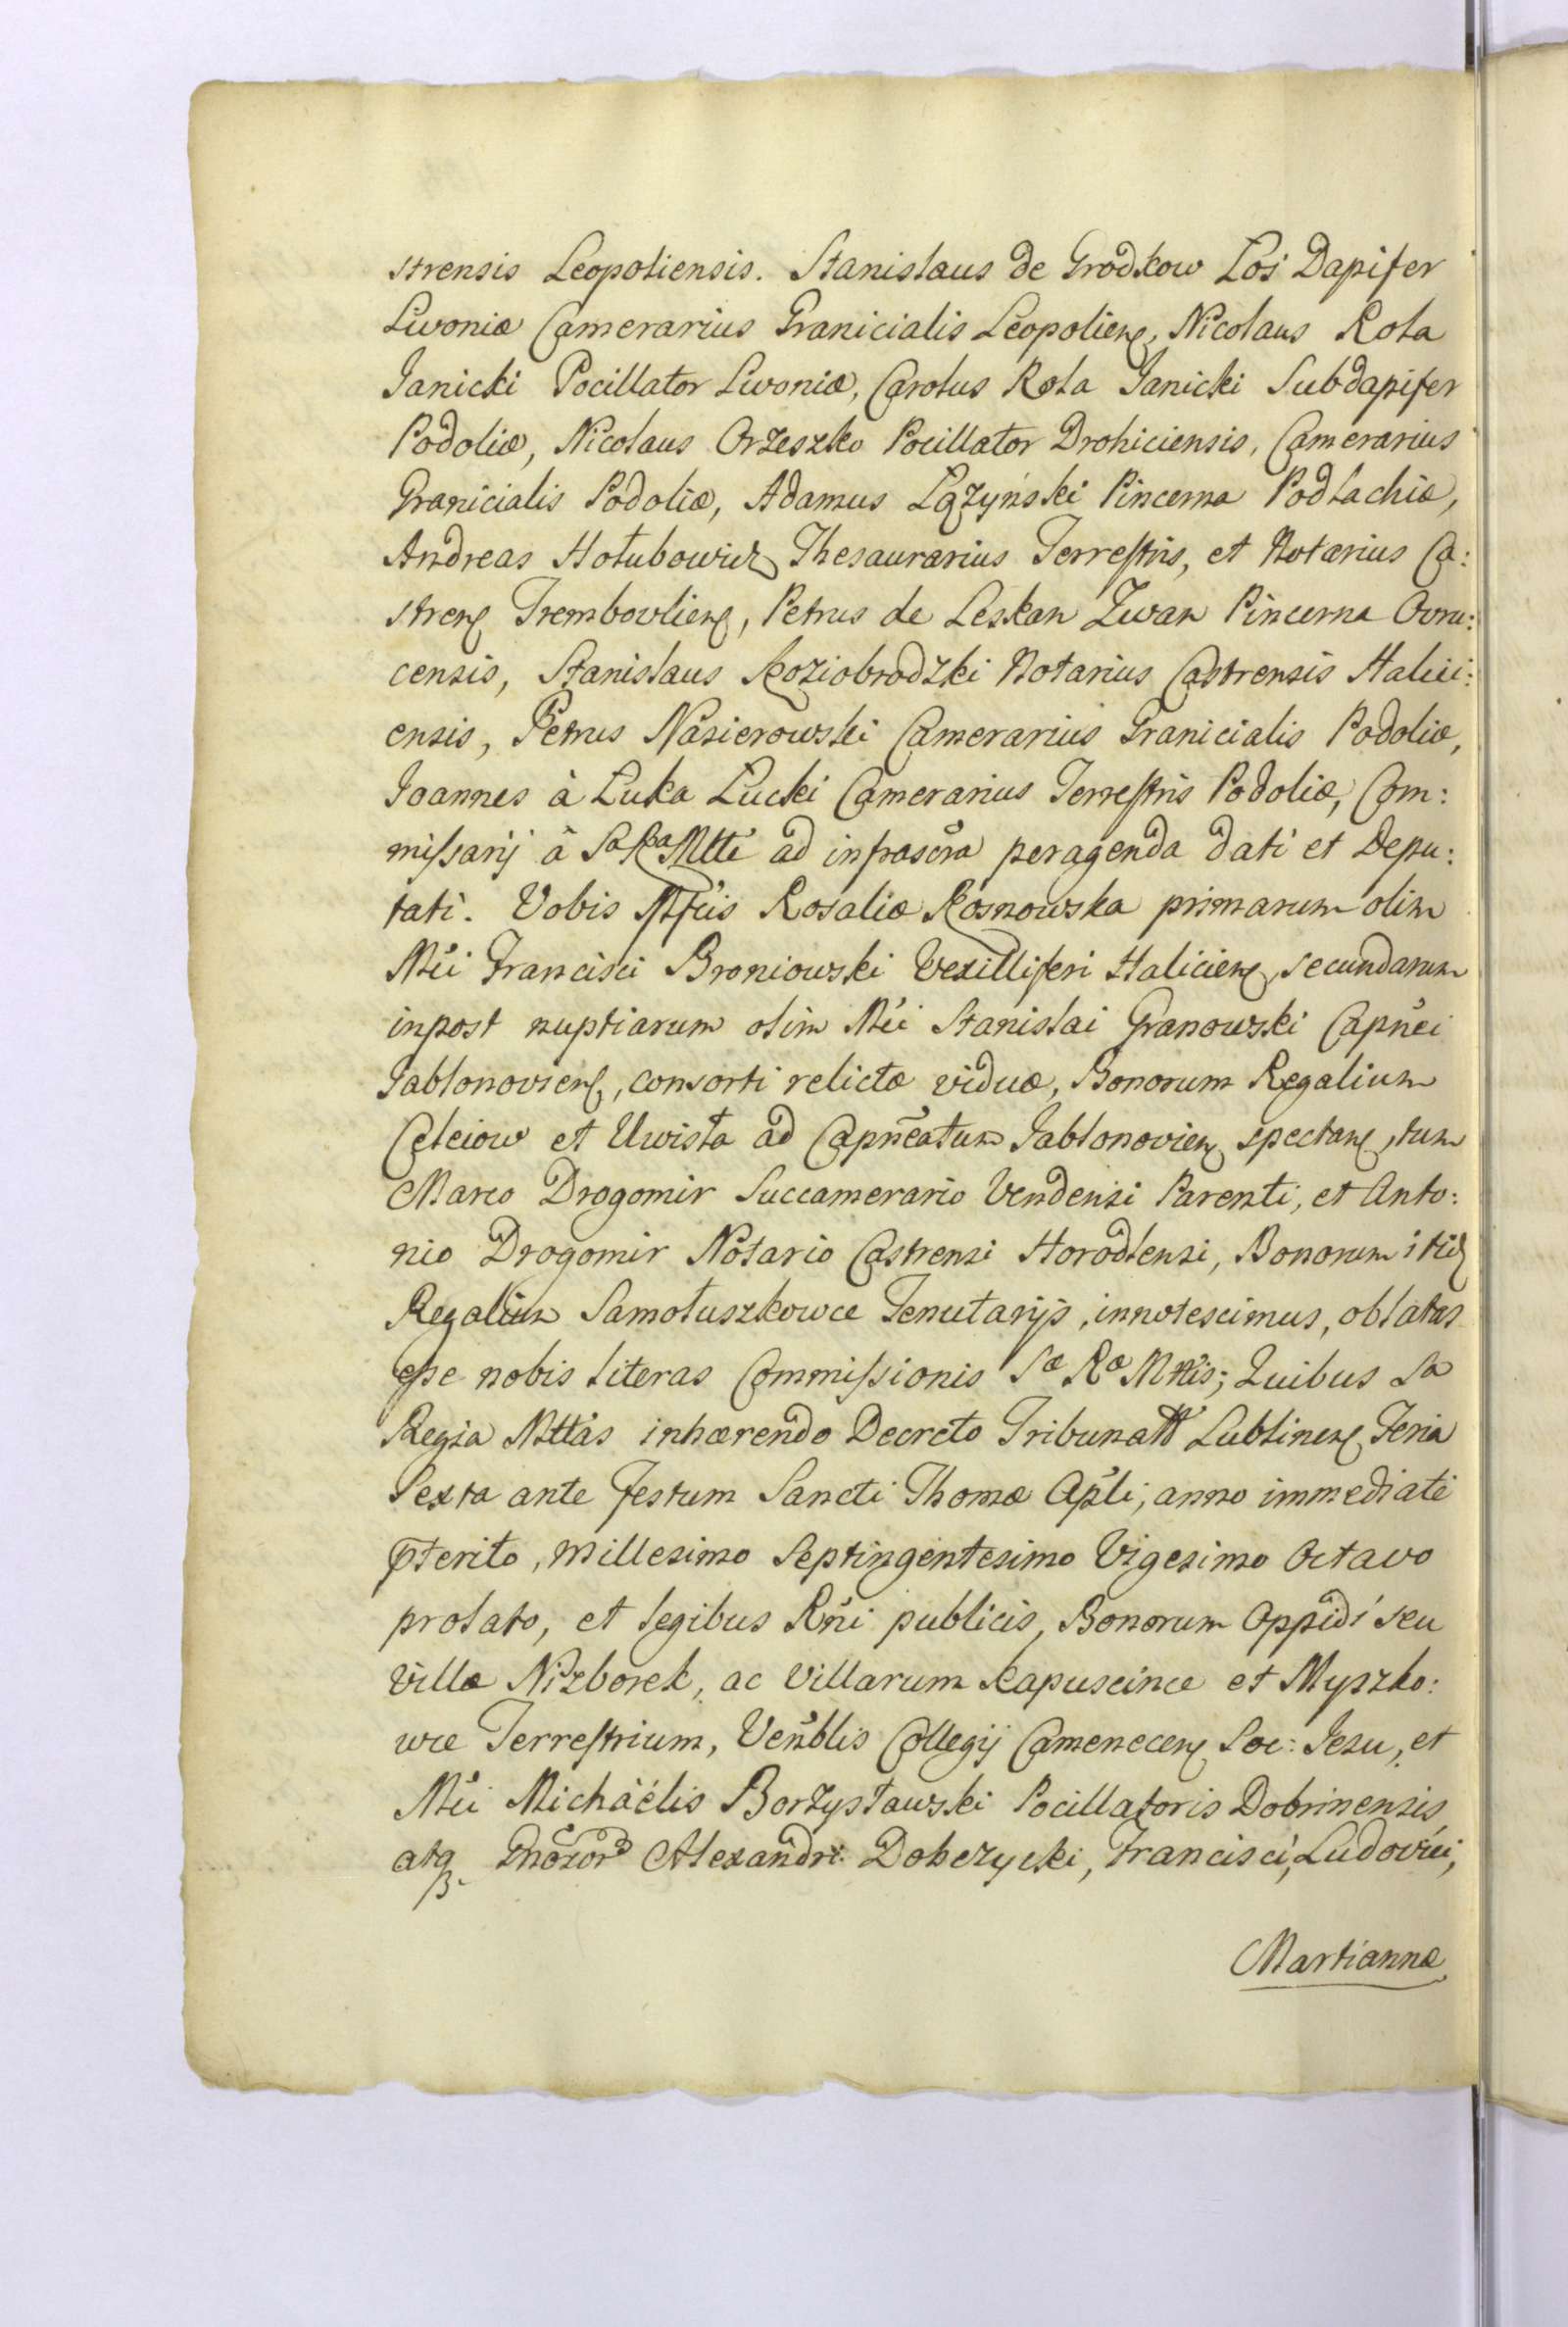 strensis Leopoliensis. Stanislaus de Grodkow Łoś Dapifer
Livoniæ Camerarius Granicialis Leopolien, Nicolaus Rola
Janicki Pocillator Livoniæ, Carolus Rola Janicki Subdapifer
Podoliæ, Nicolaus Orzeszko Pocillator Drohiciensis, Camerarius
Granicialis Podoliæ, Adamus Łązyński Pincerna Podlachiæ,
Andreas Hołubowicz Thesaurarius Terrestris, et Notarius Ca:
stren Trembovlien, Petrus de Leskan Zwan Pincerna Ovru:
censis, Stanislaus Koziobrodzki Notarius Castrensis Halici:
ensis, Petrus Nasierowski Camerarius Granicialis Podoliæ,
Joannes à Łuka Łucki Camerarius Terrestris Podoliæ, Com:
missarij â Sa Ra Mtte ad infrascra peragenda dati et Depu:
tati. Vobis Mfcis Rosaliæ Kosnowska primarum olim
Mci Francisci Broniowski Vexilliferi Halicien, secundarum
inpost nuptiarum olim Mci Stanislai Granowski Capnei
Jablonovien, consorti relictæ viduæ, Bonorum Regalium
Celeiow et Uwisła ad Capneatum Jablonovien spectan, tum
Marco Drogomir Succamerario Vendensi Parenti, et Anto:
nio Drogomir Notario Castrensi Horodlensi, Bonorum itid
Regalium Samołuszkowce Tenutarijs, innotescimus, oblatas
esse nobis literas Commissionis Sæ Ræ Mttis; Quibus Sa
Regia Mttas inhærendo Decreto Tribunalis Lublinen, Feria
Sexta ante Festum Sancti Thomæ Apli, anno immediate
pterito, Millesimo Septingentesimo Vigesimo Octavo
prolato, et legibus Rni publicis, Bonorum Oppidi seu
Villæ Nizborek, ac Villarum Kapuscince et Myszko:
wce Terrestrium, Venblis Collegij Camenecen Soc: Jesu, et
Mci Michaëlis Borzysławski Pocillatoris Dobrinensis
atq Gnosor Alexandri Dobczycki, Francisci, Ludovici,
Martiannæ